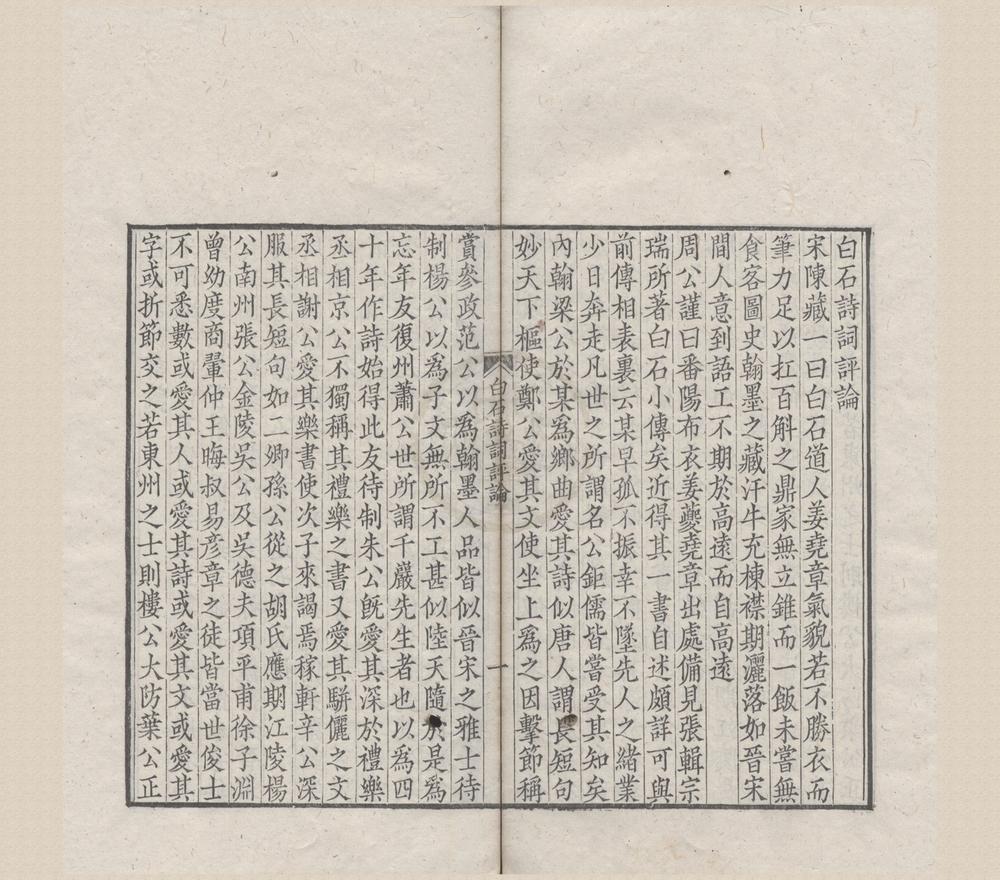 白石詩詞評論
宋陳藏一曰白石道人姜堯章氣貌若不勝衣而
筆力足以扛百斛之鼎家無立錐而一飯未嘗無
食客圖史翰墨之藏汗牛充棟襟期灑落如晉宋
間人意到語工不期於高遠而自高遠
周公謹曰番陽布衣姜夔堯章出處備見張輯宗
瑞所著白石小傳矣近得其一書自述頗詳可與
前傳相表裏云某早孤不振幸不墜先人之緒業
少日奔走凡世之所謂名公鉅儒皆嘗受其知矣
內翰梁公於某爲鄉曲愛其詩似唐人謂長短句
妙天下樞使鄭公愛其文使坐上爲之因擊節稱
白石詩詞評論
一
賞參政范公以爲翰墨人品皆似晉宋之雅士待
制楊公以爲于文無所不工甚似陸天隨於是爲
忘年友復州蕭公世所謂千嚴先生者也以爲四
十年作詩始得此友待制朱公旣愛其深於禮樂
丞相京公不獨稱其禮樂之書又愛其駢儷之文
丞相謝公愛其樂書使次子來謁焉稼軒辛公深
服其長短句如二卿孫公從之胡氏應期江陵楊
公南州張公金陵吳公及吳德夫項平甫徐子淵
曾幼度商翬仲王晦叔易彥章之徒皆當世俊士
不可悉數或愛其人或愛其詩或愛其文或愛其
字或折節交之若東州之士則樓公大防葉公正